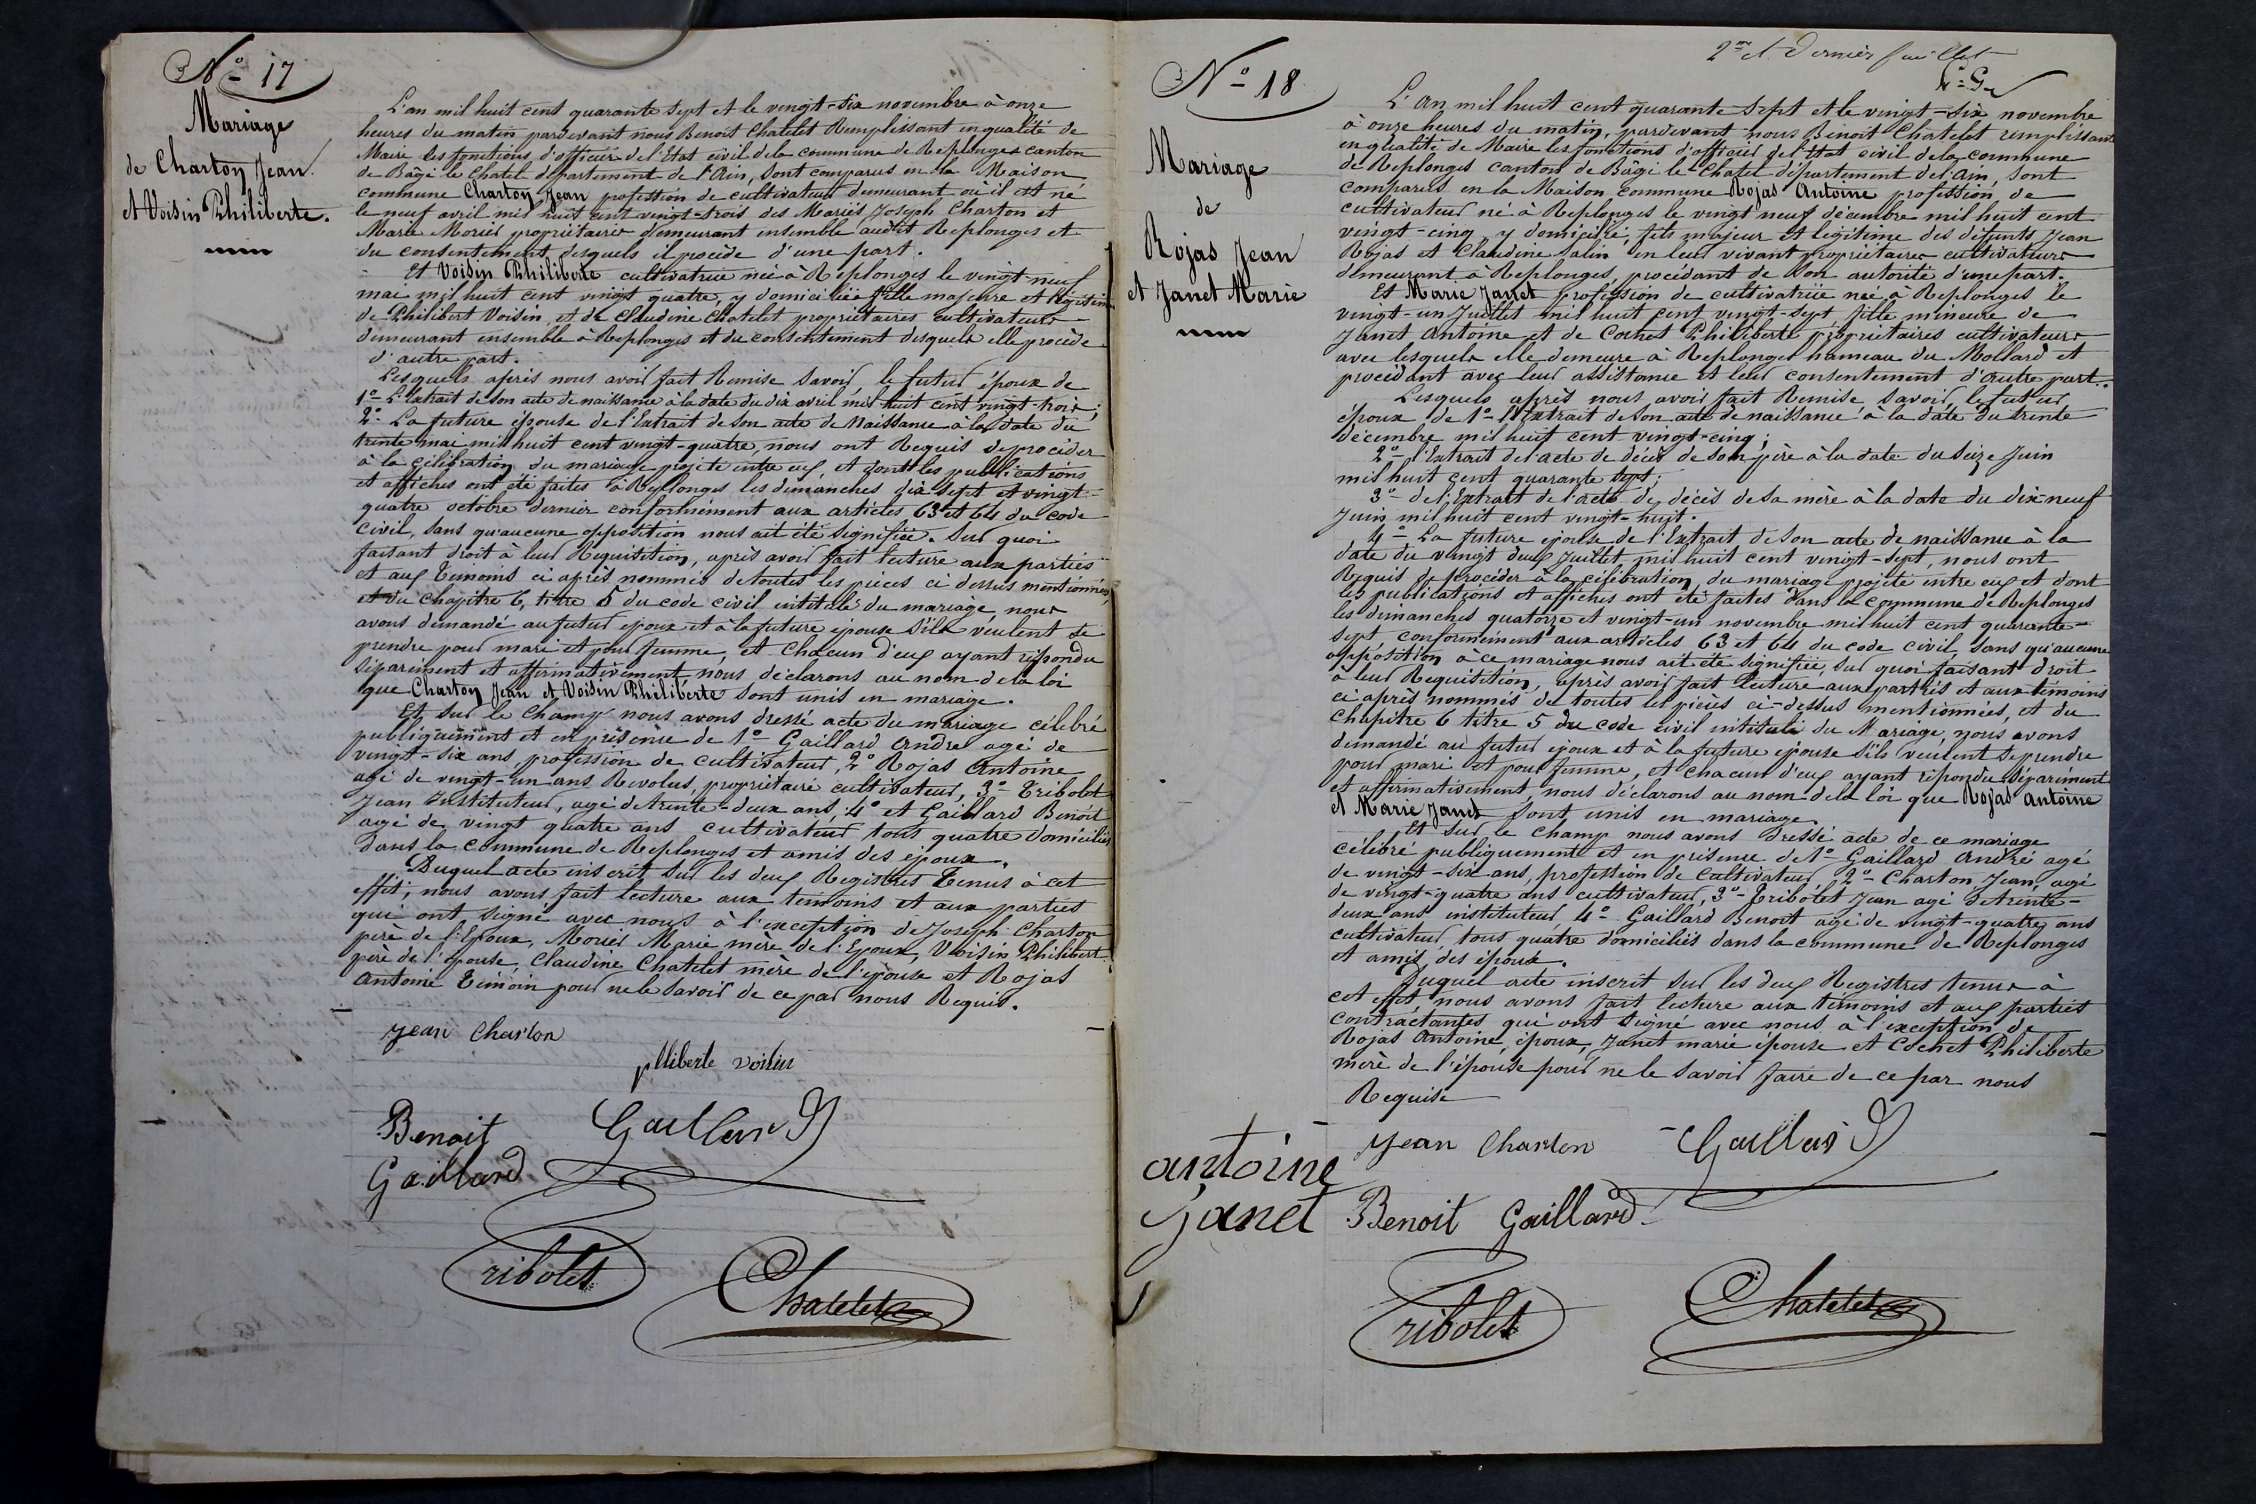 N° 17
Mariage
de Charton Jean
et Voisin Philiberte.
L'an mil huit cent quarante sept et le vingt-six novembre à onze
heures du matin pardevant nous Benoit Chatelet Remplissant en qualité de
Maire les fonctions d'officier de l'Etat civil de la commune de Replonges canton
de Bâgé le Chatel département de l'Ain, sont comparus en la Maison
commune Charton Jean profession de cultivateur demeurant où il est né
le neuf avril mil huit cent vingt-trois des Mariés Joseph Charton et
Marie Morier propriétaires demeurant ensemble audit Replonges et
du consentement desquels il procède d'une part.
Et Voisin Philiberte cultivatrice née à Replonges le vingt-neuf
mai mil huit cent vingt quatre, y domiciliée fille majeure et légitime
de Philibert Voisin et de Claudine Chatelet propriétaires cultivateurs
demeurant ensemble à Replonges et du consentement desquels elle procède
d'autre part.
Lesquels après nous avoir fait Remise savoir, le futur époux de
1° L'Extrait de son acte de naissance à la date du dix avril mil huit cent vingt trois;
2° La future épouse de l'Extrait de son acte de Naissance à la date du
trente mai mil huit cent vingt-quatre, nous ont Requis de procéder
à la célébration du mariage projeté entre eux et dont les publications
et affiches ont été faites à Replonges les dimanches dix sept et vingt-
quatre octobre dernier conformément aux articles 63 et 64 du code
civil, sans qu'aucune opposition nous ait été signifiée. Sur quoi
faisant droit à leur Requisition, après avoir fait lecture aux parties
et aux Témoins ci après nommés de toutes les pièces ci dessus mentionnées,
et du chapitre 6, titre 5 du code civil intitulé du mariage nous
avons demandé au futur epoux et à la future épouse s'ils veulent se
prendre pour mari et pour femme, et chacun d'eux ayant répondu
séparément et affirmativement, nous déclarons au nom de la loi
que Charton Jean et Voisin Philiberte sont unis en mariage.
Et sur le champ nous avons dressé acte du mariage célébré
publiquement et en présence de 1° Gaillard André agé de
vingt-six ans profession de cultivateur, 2° Rojas Antoine
agé de vingt-un ans Revolus, propriétaire cultivateur, 3° Tribolet
Jean Instituteur, agé de trente-deux ans, 4° et Gaillard Benoit
agé de vingt quatre ans cultivateur, tous quatre domiciliés
dans la commune de Replonges et amis des époux.
Duquel acte inscrit sur les deux Registres Tenus à cet
effet, nous avons fait lecture aux témoins et aux parties
qui ont signé avec nous à l'exception de Joseph Charton
père de l'Epoux, Morier Marie mère de l'Epoux, Voisin Philibert
père de l'épouse, Claudine Chatelet mère de l'épouse et Rojas
Antoine Témoin pour ne le savoir de ce par nous Requis.
Jean Charton
philiberte voisin
Benoit
Gaillard
Gaillard
Tribolet
Chatelet
2me et Dernier feuillet
N° 18
Mariage
de
Rojas Jean
et Janet Marie
L'An mil huit cent quarante-sept et le vingt-six novembre
à onze heures du matin, pardevant nous Benoit Chatelet remplissant
en qualité de Maire les fonctions d'officier de l'Etat civil de la commune
de Replonges canton de Bâgé le Chatel département de l'Ain, sont
comparus en la Maison commune Rojas Antoine profession de
cultivateur né à Replonges le vingt neuf décembre mil huit cent
vingt-cinq, y domicilié, fils majeur et légitime des défunts Jean
Rojas et Claudine Salin en leur vivant propriétaires cultivateurs
demeurant à Replonges, procédant de son autorité d'une part.
Et Marie Janet profession de cultivatrice née à Replonges le
vingt-un Juillet mil huit cent vingt-sept fille mineure de
Janet Antoine et de Cochet Philiberte propriétaires cultivateurs
avec lesquels elle demeure à Replonges hameau du Mollard et
procédant avec leur assistance et leur consentement d'autre part.
Lesquels après nous avoir fait Remise savoir, le futur
époux de 1° l'Extrait de son acte de naissance à la date du trente
décembre mil huit cent vingt-cinq;
2° l'Extrait de l'acte de décès de son père à la date du seize Juin
mil huit cent quarante sept;
3° de l'Extrait de l'acte de décès de sa mère à la date du dix-neuf
Juin mil huit cent vingt-huit.
4° La future épouse de l'Extrait de son acte de naissance à la
date du vingt deux Juillet mil huit cent vingt-sept, nous ont
Requis de procéder à la célébration du mariage projeté entre eux et dont
les publications et affiches ont été faites dans la commune de Replonges
les dimanches quatorze et vingt-un novembre mil huit cent quarante-
sept conformément aux articles 63 et 64 du code civil, sans qu'aucune
opposition à ce mariage nous ait été signifiée, sur quoi faisant droit
à leur Requisition, après avoir fait lecture aux parties et aux témoins
ci après nommés de toutes les pièces ci-dessus mentionnées, et du
Chapitre 6 titre 5 du code civil intitulé du Mariage, nous avons
demandé au futur epoux et à la future épouse s'ils veulent se prendre
pour mari et pour femme, et chacun d'eux ayant répondu séparément
et affirmativement nous déclarons au nom de la loi que Rojas Antoine
et Marie Janet sont unis en mariage.
Et sur le champ nous avons dressé acte de ce mariage
célébré publiquement et en présence de 1° Gaillard André agé
de vingt-six ans, profession de cultivateur 2° Charton Jean, agé
de vingt-quatre ans cultivateur, 3° Tribolet Jean agé de trente-
deux ans instituteur 4° Gaillard Benoit agé de vingt-quatre ans
cultivateur, tous quatre domiciliés dans la commune de Replonges
et amis des époux.
Duquel acte inscrit sur les deux Registres tenus à
cet effet nous avons fait lecture aux témoins et aux parties
contractantes qui ont signé avec nous à l'exception de
Rojas Antoine époux, Janet marie épouse et Cochet Philiberte
mère de l'épouse pour ne le savoir faire de ce par nous
Requise
Jean Charton
Gaillard
antoine
Janet
Benoit Gaillard
Tribolet
Chatelet